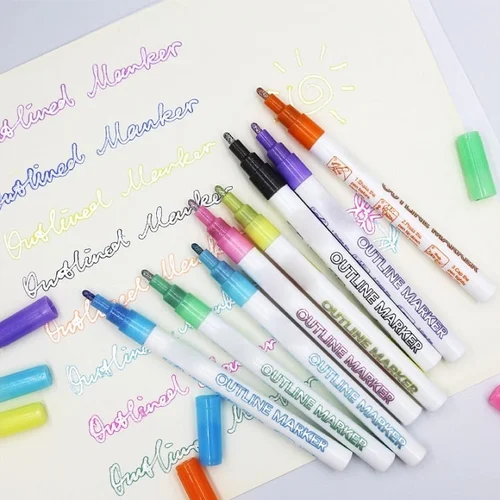 Outlined Marker
Outlined Marker
Outlined Marker
Outlined Marker
Outlined Marker
Outlined Marker
Outlined Marker
Outlined Marker
OUTLINE MARKER
OUTLINE MARKER
OUTLINE MARKER
OUTLINE MARKER
OUTLINE MARKER
OUTLINE MARKER
OUTLINE MARKER
OUTLINE MARKER